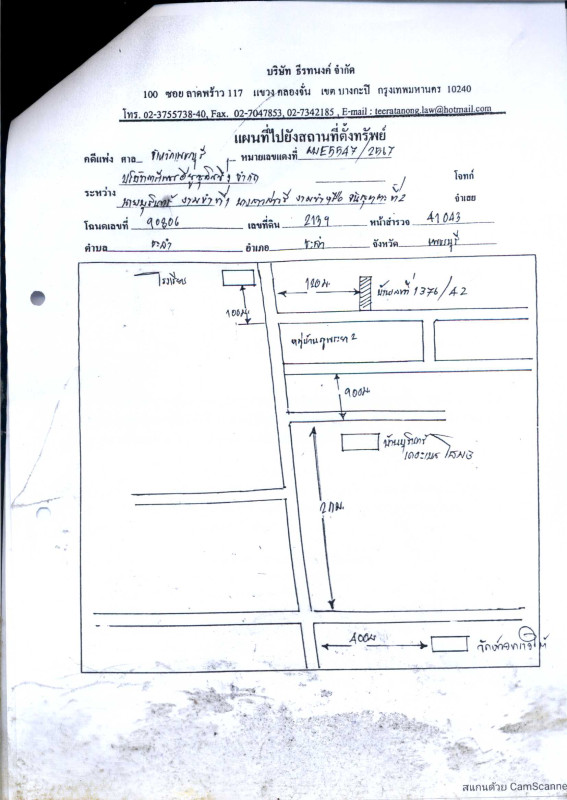 บริษัท ธีรทนงค์ จำกัด
100 ซอย ลาดพร้าว 117 แขวง คลองจั่น เขต บางกะปี กรุงเทพมหานคร 10240
โทร. 02-3755738-40, Fax. 02-7047853, 02-7342185 , E-mail : teeratanong.law@hotmail.com
แผนที่ไปยังสถานที่ตั้งทรัพย์
คดีแพ่ง ศาล จังหวัดเพชรบุรี หมายเลขแดงที่ ผบE5547/2567
จำกัด โจทก์
ระหว่าง ที่ 1 ที่ 2 จำเลย
โฉนดเลขที่ 90806 เลขที่ดิน 2139 หน้าสำรวจ 41043
ตำบล ชะอำ อำเภอ ชะอำ จังหวัด เพชรบุรี
โรงเรียน
120 ม
บ้านเลขที่ 1376/42
100ม
หมู่บ้าน 2
900ม
2 กม.
400ม
สแกนด้วย CamScanne